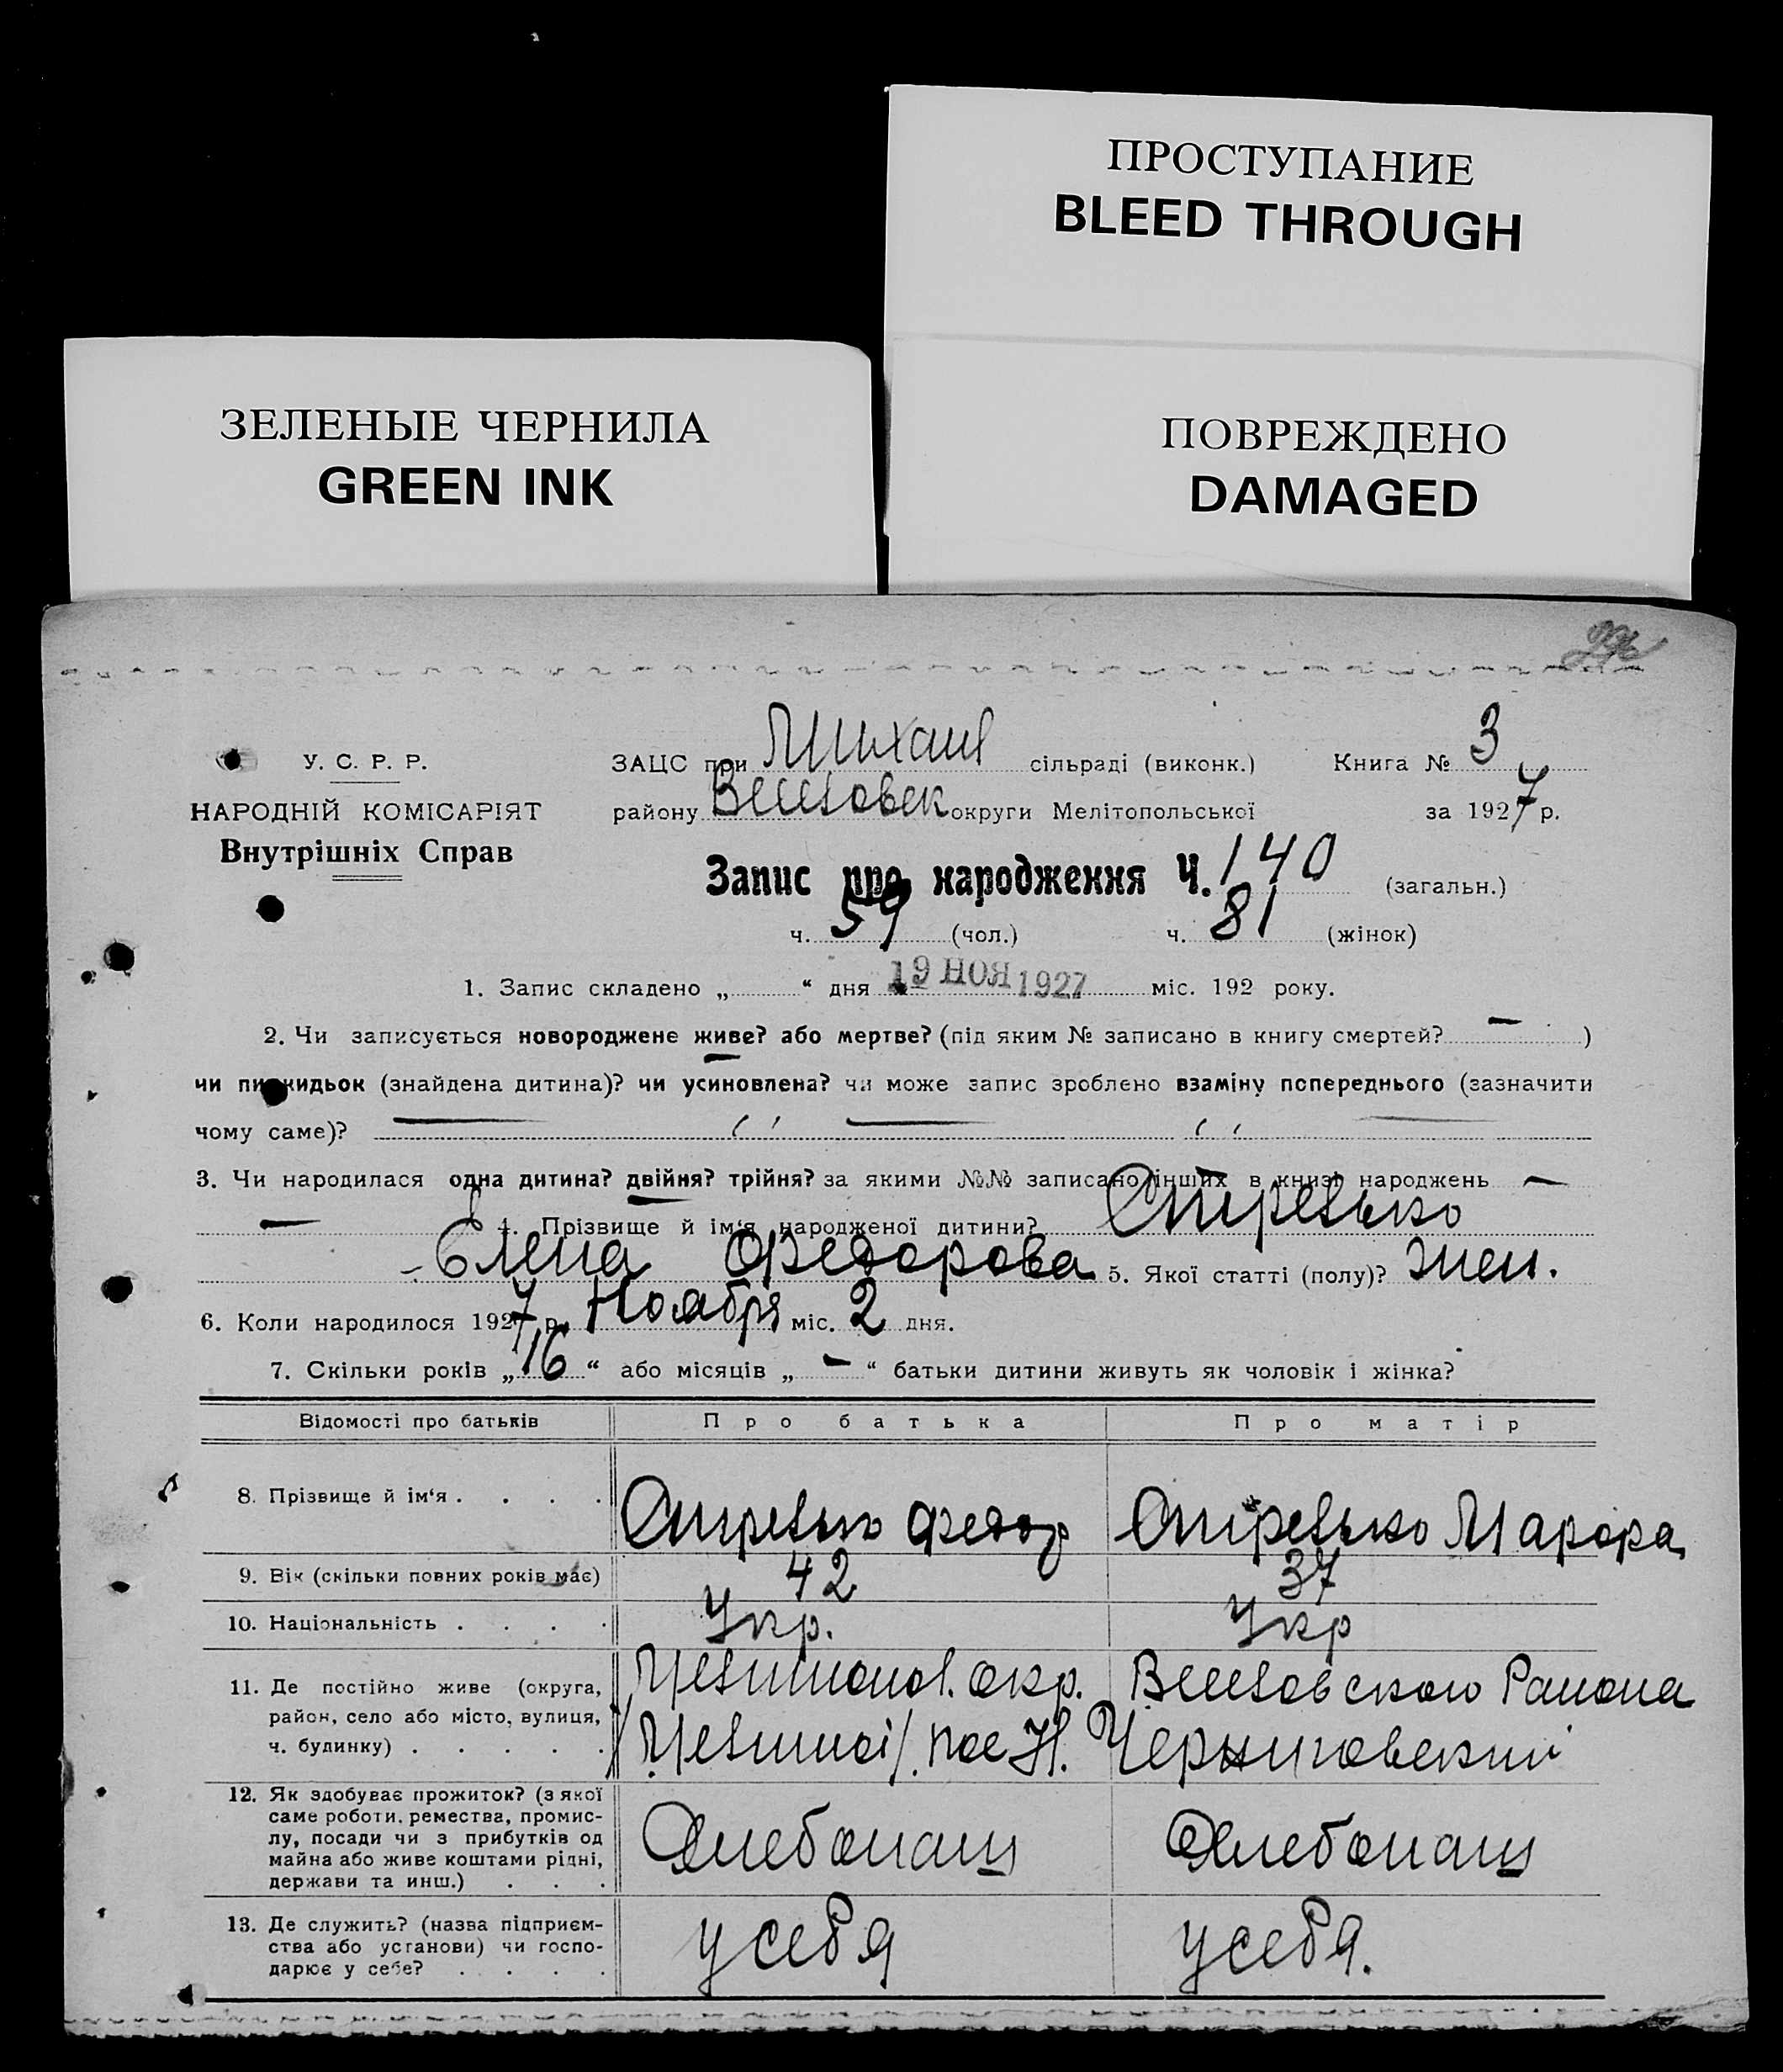 ПРОСТУПАНИЕ
BLEED THROUGH
ЗЕЛЕНЫЕ ЧЕРНИЛА
GREEN INK
ПОВРЕЖДЕНО
DAMAGED
У. С. Р. Р.
НАРОДНІЙ КОМІСАРІЯТ
Внутрішніх Справ
ЗАЦС при Михайл сільраді (виконк.) Книга № 3
району Веселовск округи Мелітопольської за 1927 р.
Запис про народження Ч. 140 (загальн.)
ч. 59 (чол.) ч. 81 (жінок)
1. Запис складено „ “ дня 19 НОЯ 1927 міс. 192 року.
2. Чи записується новороджене живе? або мертве? (під яким № записано в книгу смертей? — )
чи пидкидьок (знайдена дитина)? чи усиновлена? чи може запис зроблено взаміну попереднього (зазначити
чому саме)? — " — " —
3. Чи народилася одна дитина? двійня? трійня? за якими №№ записано інших в книзі народжень —
— 4. Прізвище й ім‘я народженої дитини? Стрелько
Елена Федорова 5. Якої статті (полу)? жен.
6. Коли народилося 1927 р. Ноября міс. 2 дня.
7. Скільки років „ 16 “ або місяців „ — “ батьки дитини живуть як чоловік і жінка?
Відомості про батьків Про батька Про матір
8. Прізвище й ім‘я . . . . Стрелько Федор Стрелько Марфа
9. Вік (скільки повних років має) 42 37
10. Національність . . . . Укр. Укр
11. Де постійно живе (округа, район, село або місто, вулиця, ч. будинку) . . . . . Мелитопол. окр. Веселовского Района
пос Н. Черниговский
12. Як здобуває прожиток? (з якої саме роботи, ремества, промислу, посади чи з прибутків од майна або живе коштами рідні, держави та инш.) . . . Хлебопаш Хлебопаш
13. Де служить? (назва підприємства або установи) чи господарює у себе? . . . . у себя у себя.